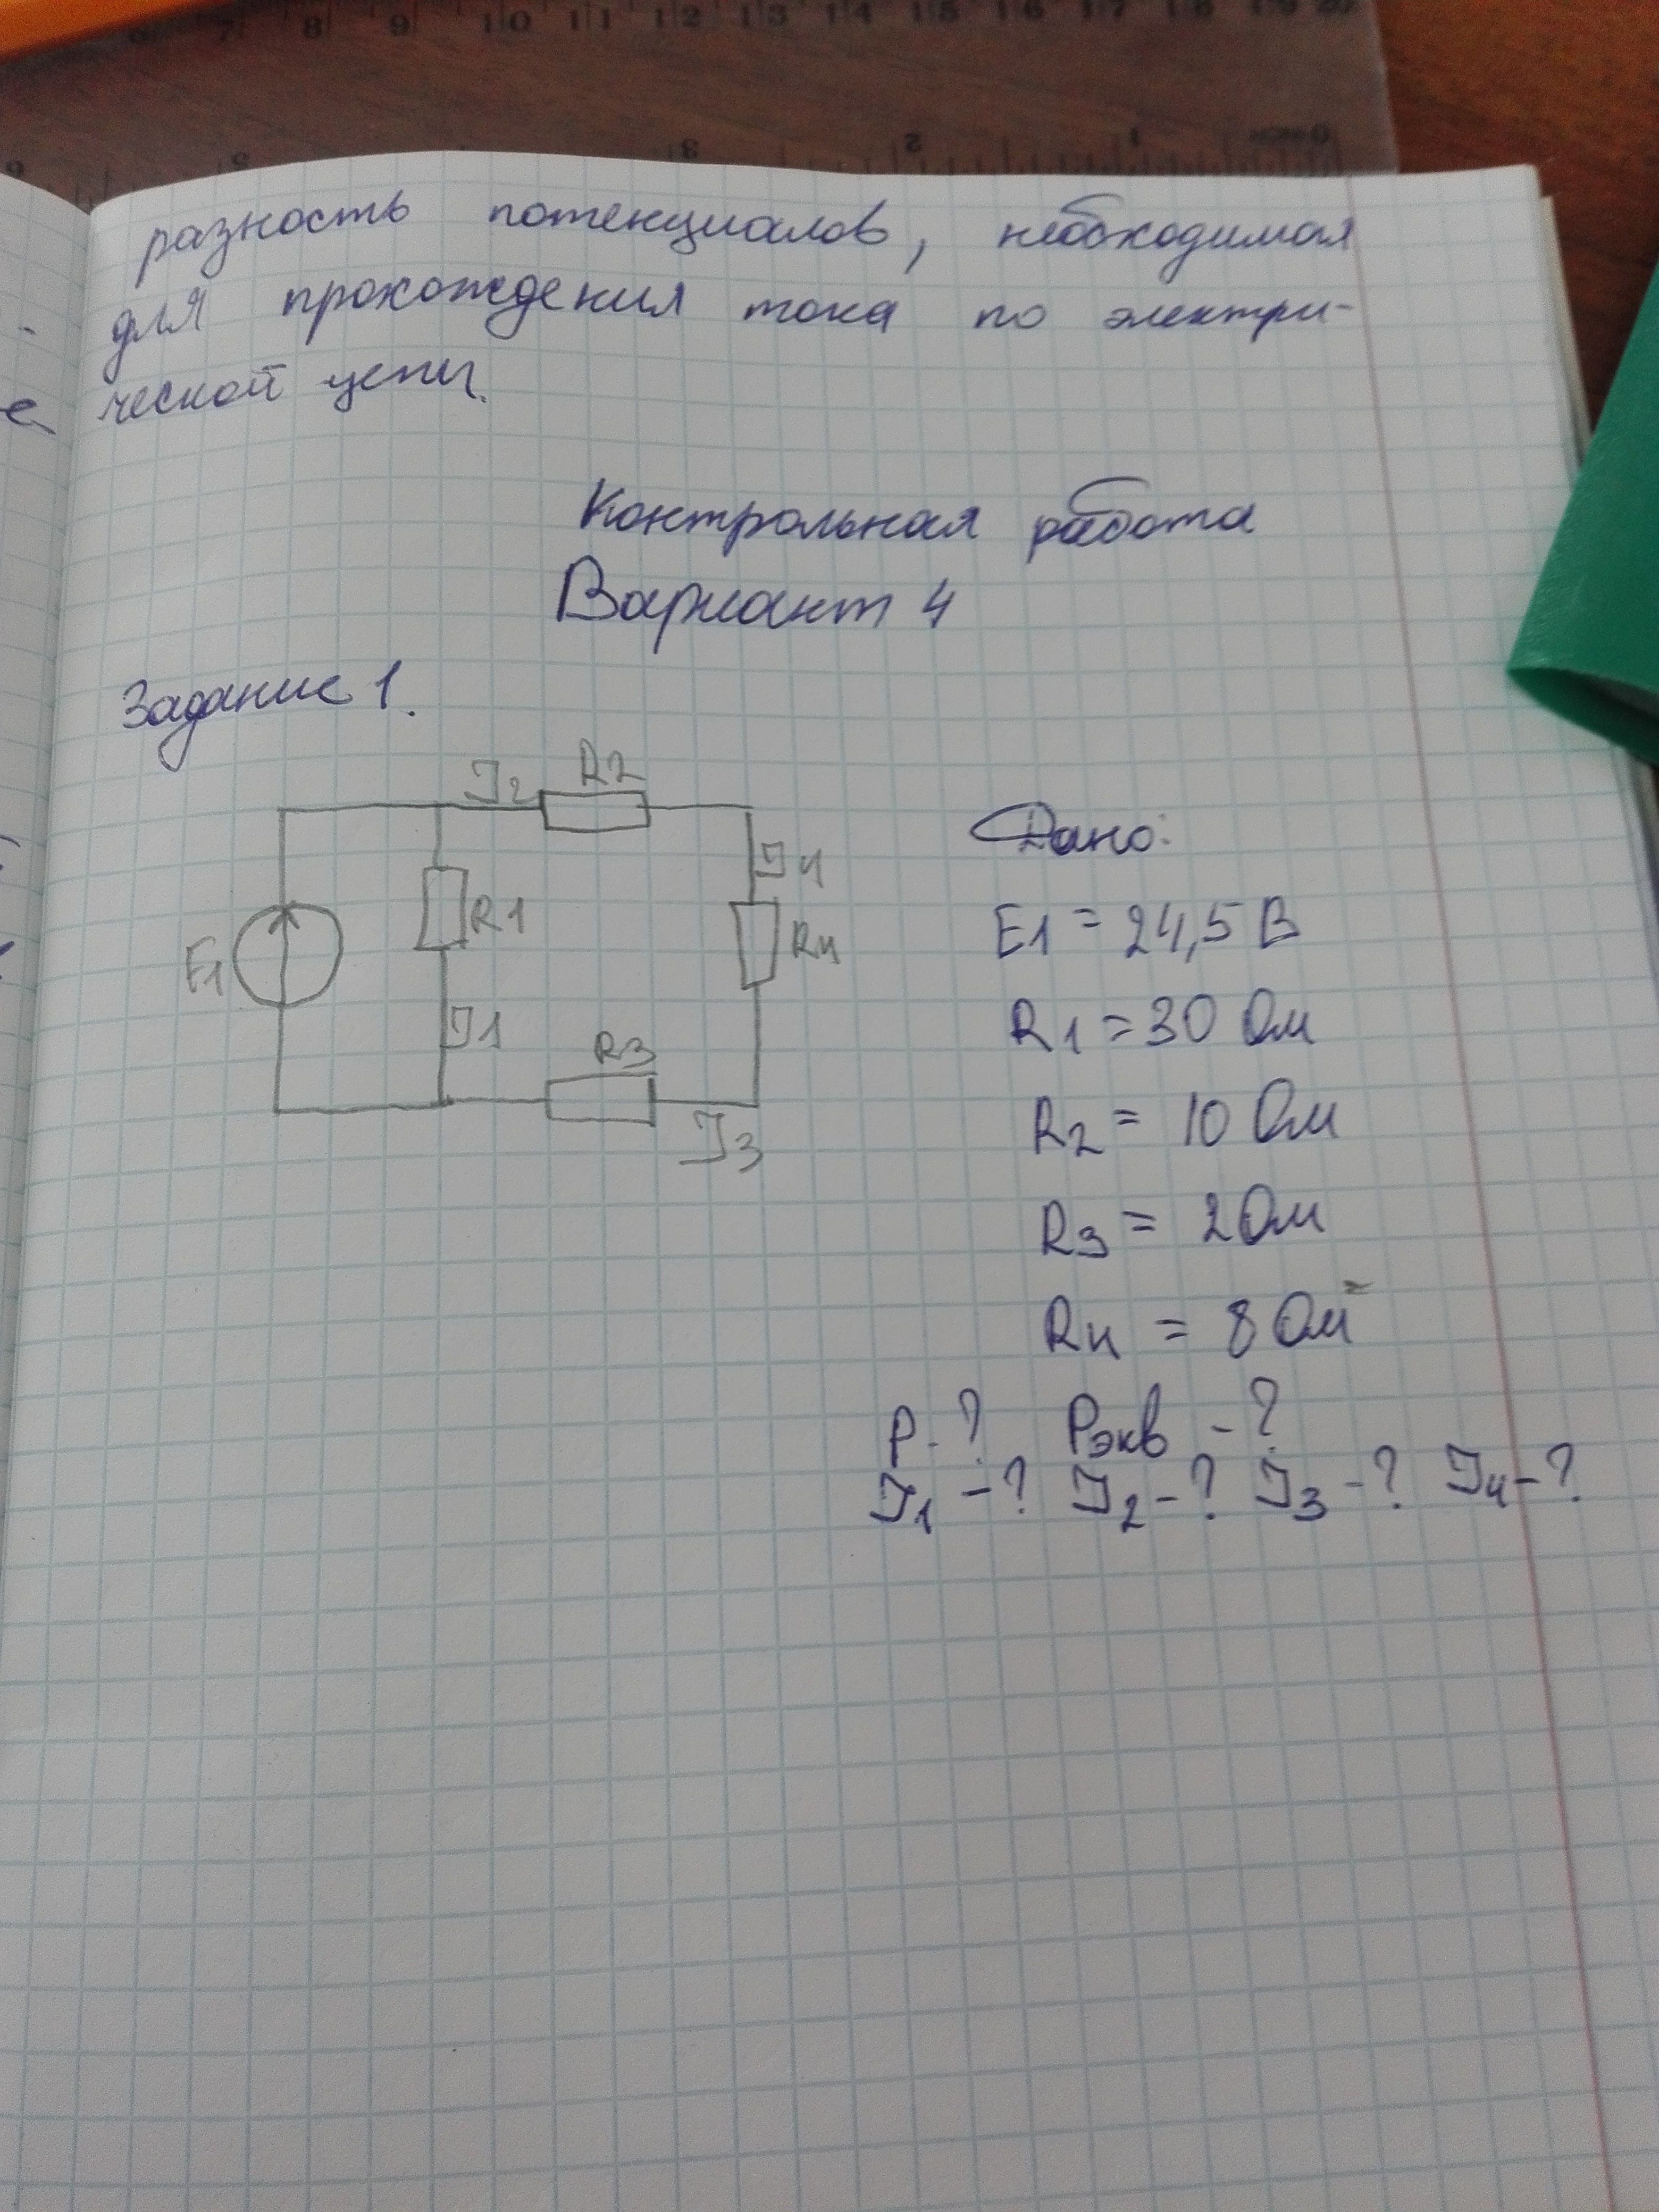 6 7 8 9 10 11 12 13 14 15 16 17 18 19 20
3 2 1 0
разность потенциалов, необходимая
для прохождения тока по электри-
ческой цепи.
Контрольная работа
Вариант 4
Задание 1.
I2 R2
I4
E1 R1 R4
I1
R3
I3
Дано:
E1 = 24,5 В
R1 = 30 Ом
R2 = 10 Ом
R3 = 2 Ом
R4 = 8 Ом
P-? Pэкв - ?
I1 -? I2 -? I3 -? I4 -?